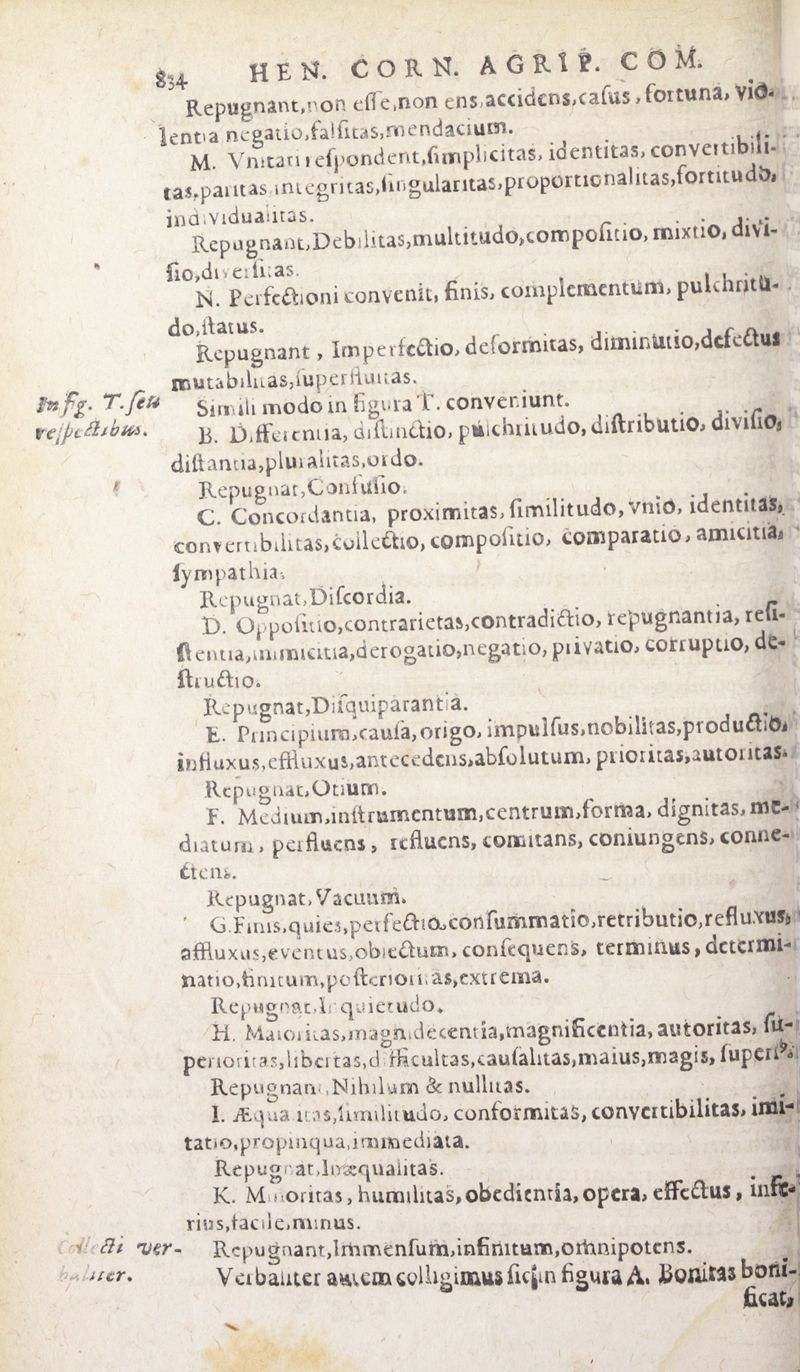 834 HEN. CORN. AGRIP. COM.
Repugnant,non eſſe,non ens,accidens,caſus,fortuna, vio-
lentia negatio,falſitas,mendacium.
M. Vnitati reſpondent,ſimplicitas, identitas, convertibili-
tas,paritas integritas,ſingularitas,proportionalitas,fortitudo,
individualitas.
Repugnant,Debilitas,multitudo,compoſitio, mixtio, divi-
ſio,diverſitas.
N. Perfectioni convenit, finis, complementum, pulchritu-
do,ſtatus.
Repugnant, Imperfectio, deformitas, diminutio,defectus
mutabilitas,ſuperfluitas.
In fig. T. ſeu Simili modo in figura T. conveniunt.
reſpectibus. B. Differentia, diſtinctio, pulchritudo, diſtributio, diviſio,
diſtantia,pluralitas,ordo.
Repugnat,Confuſio.
C. Concordantia, proximitas, ſimilitudo, vnio, identitas,
convertibilitas,collectio, compoſitio, comparatio, amicitia,
ſympathia.
Repugnat,Diſcordia.
D. Oppoſitio,contrarietas,contradictio, repugnantia, reſi-
ſtentia,inimicitia,derogatio,negatio, privatio, corruptio, de-
ſtructio.
Repugnat,Diſquiparantia.
E. Principium,cauſa, origo, impulſus,nobilitas,productio,
influxus,effluxus,antecedens,abſolutum, prioritas,autoritas.
Repugnat,Otium.
F. Medium,inſtrumentum,centrum,forma, dignitas, me-
diatum, perfluens, refluens, comitans, coniungens, conne-
ctens.
Repugnat, Vacuum.
G. Finis,quies,perfectio,conſummatio,retributio,refluxus,
affluxus,eventus,obiectum, conſequens, terminus, determi-
natio,finitum,poſterioritas,extrema.
Repugnat,Inquietudo.
H. Maioritas,magnidecentia,magnificentia, autoritas, ſu-
perioritas,libertas,difficultas,cauſalitas,maius,magis, ſuperiꝰ.
Repugnant,Nihilum & nullitas.
I. Æqualitas,ſimilitudo, conformitas, convertibilitas, imi-
tatio,propinqua,immediata.
Repugnat,Inæqualitas.
K. Minoritas, humilitas, obedientia, opera, effectus, infe-
rius,facile,minus.
Collecti ver- Repugnant,Immenſum,infinitum,omnipotens.
baliter. Verbaliter autem colligimus ſic,in figura A. Bonitas boni-
ficat,